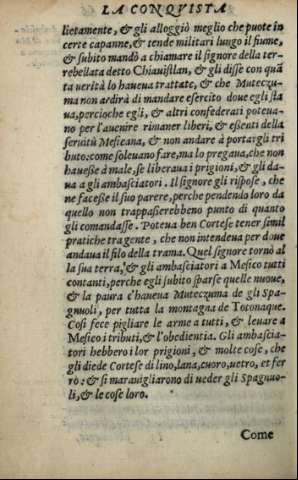 LA CONQVISTA
lietamente, & gli alloggiò meglio che puote in
certe capanne, & tende militari lungo il fiume,
& subito mandò a chiamare il signore della ter-
rebellata detto Chiauistlan, & gli disse con quã
ta uerità lo haueua trattato, & che Muteczu-
ma non ardirà di mandare esercito doue egli sta
ua, percioche egli, & altri confederati poteua-
no per l'auenire rimaner liberi, & esenti della
seruitù Mesicana, & non andare à portargli tri
buto: come soleuano fare, ma lo pregaua, che non
hauesse à male, se liberaua i prigioni, & gli da-
ua a gli ambasciatori. Il signore gli rispose, che
ne facesse il suo parere, perche pendendo loro da
quello non trappasserebbeno punto di quanto
gli comandasse. Poteua ben Cortese tener simil
pratiche tra gente, che non intendeua per doue
andaua il filo della trama. Quel signore tornò al
la sua terra, & gli ambasciatori a Mesico tutti
contanti, perche egli subito sparse quelle nuoue,
& la paura c'haueua Muteczuma de gli Spa-
gnuoli, per tutta la montagna de Totonaque.
Cosi fece pigliare le arme a tutti, & leuare a
Mesico i tributi, & l'obedientia. Gli ambascia-
tori hebbero i lor prigioni, & molte cose, che
gli diede Cortese di lino, lana, cuoro, uetro, et fer
ro: & si marauigliarono di ueder gli Spagnuo-
li, & le cose loro.
Come